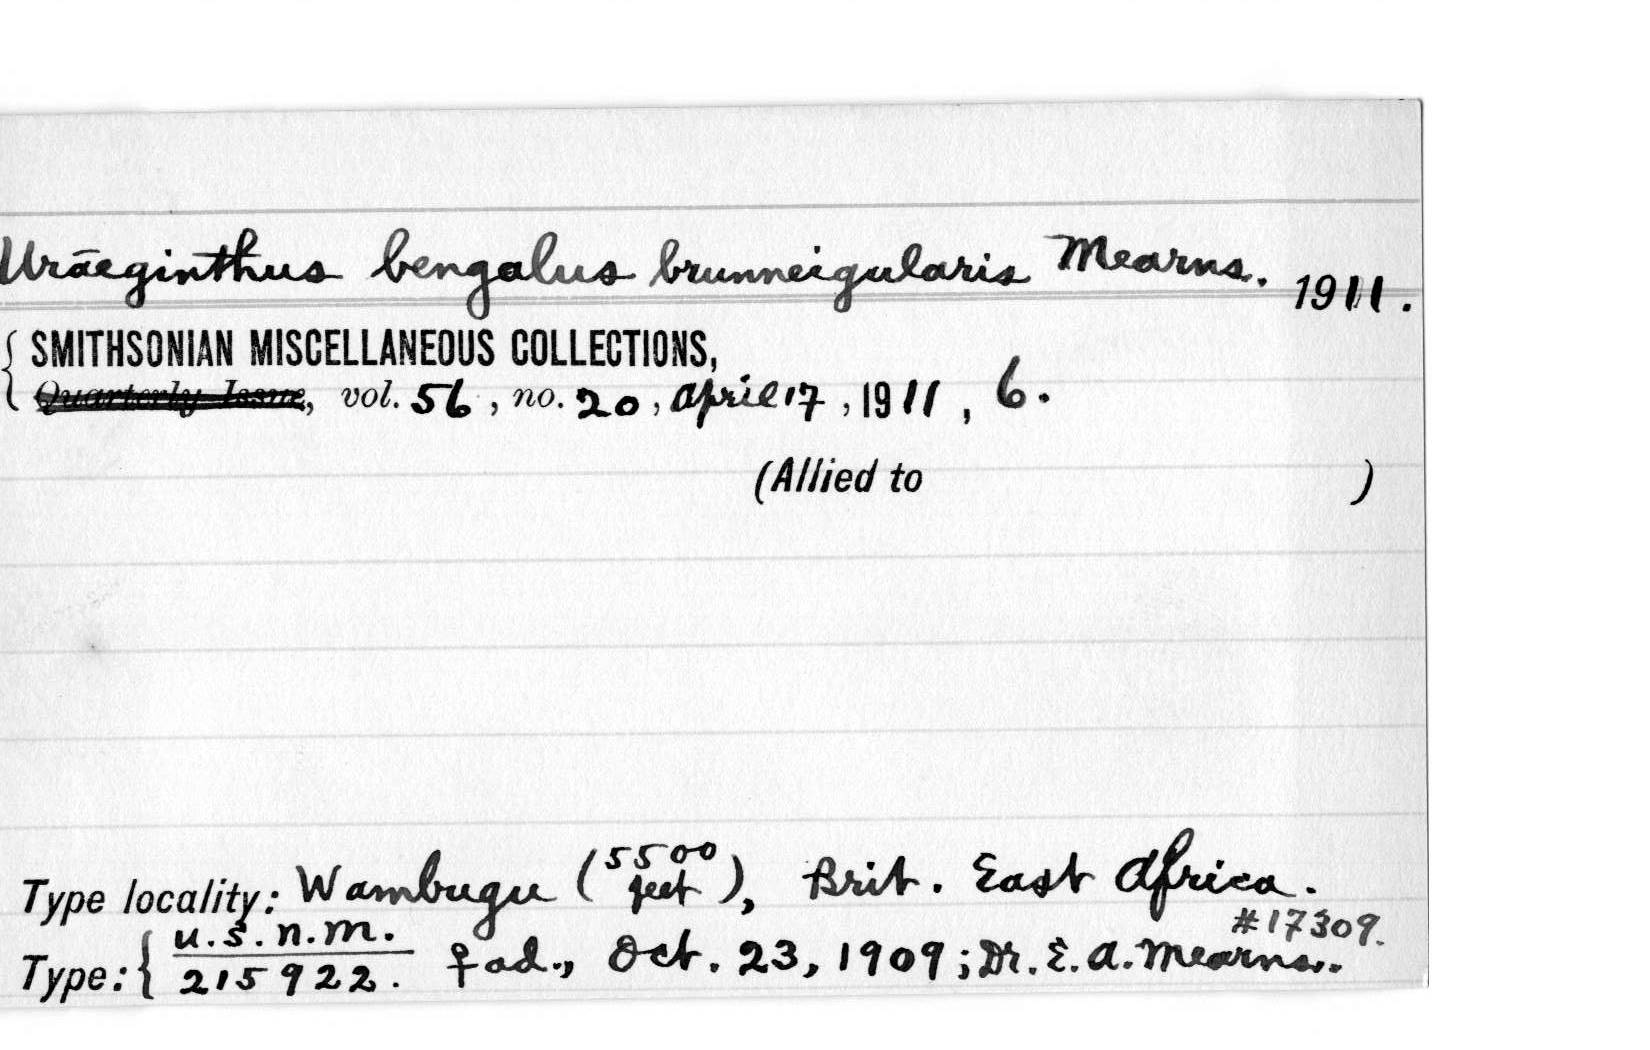 Uraeginthus bengalus brunneigularis Mearns. 1911.
SMITHSONIAN MISCELLANEOUS COLLECTIONS,
Quarterly Issue, vol. 56, no. 20, April 17, 1911, 6.
(Allied to )
Type locality: Wambugu (5500 feet), Brit. East Africa.
#17309.
Type: { U.S.N.M. 215922. ♀ ad., Oct. 23, 1909; Dr. E. A. Mearns.